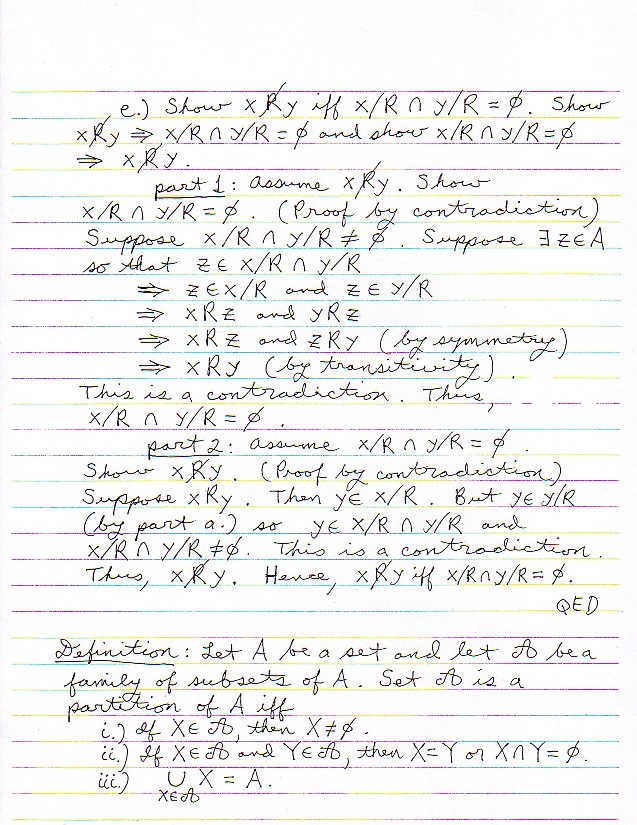 e.) Show x R̸ y iff x/R ∩ y/R = ∅. Show
x R̸ y ⇒ x/R ∩ y/R = ∅ and show x/R ∩ y/R = ∅
⇒ x R̸ y.
part 1: Assume x R̸ y. Show
x/R ∩ y/R = ∅. (Proof by contradiction)
Suppose x/R ∩ y/R ≠ ∅. Suppose ∃ z ∈ A
so that z ∈ x/R ∩ y/R
⇒ z ∈ x/R and z ∈ y/R
⇒ x R z and y R z
⇒ x R z and z R y (by symmetry)
⇒ x R y (by transitivity).
This is a contradiction. Thus,
x/R ∩ y/R = ∅.
part 2: Assume x/R ∩ y/R = ∅.
Show x R̸ y. (Proof by contradiction.)
Suppose x R y. Then y ∈ x/R. But y ∈ y/R
(by part a.) so y ∈ x/R ∩ y/R and
x/R ∩ y/R ≠ ∅. This is a contradiction.
Thus, x R̸ y. Hence, x R̸ y iff x/R ∩ y/R = ∅.
QED
Definition: Let A be a set and let 𝒜 be a
family of subsets of A. Set 𝒜 is a
partition of A iff
i.) If X ∈ 𝒜, then X ≠ ∅.
ii.) If X ∈ 𝒜 and Y ∈ 𝒜, then X = Y or X ∩ Y = ∅.
iii.) ∪ X = A.
X ∈ 𝒜